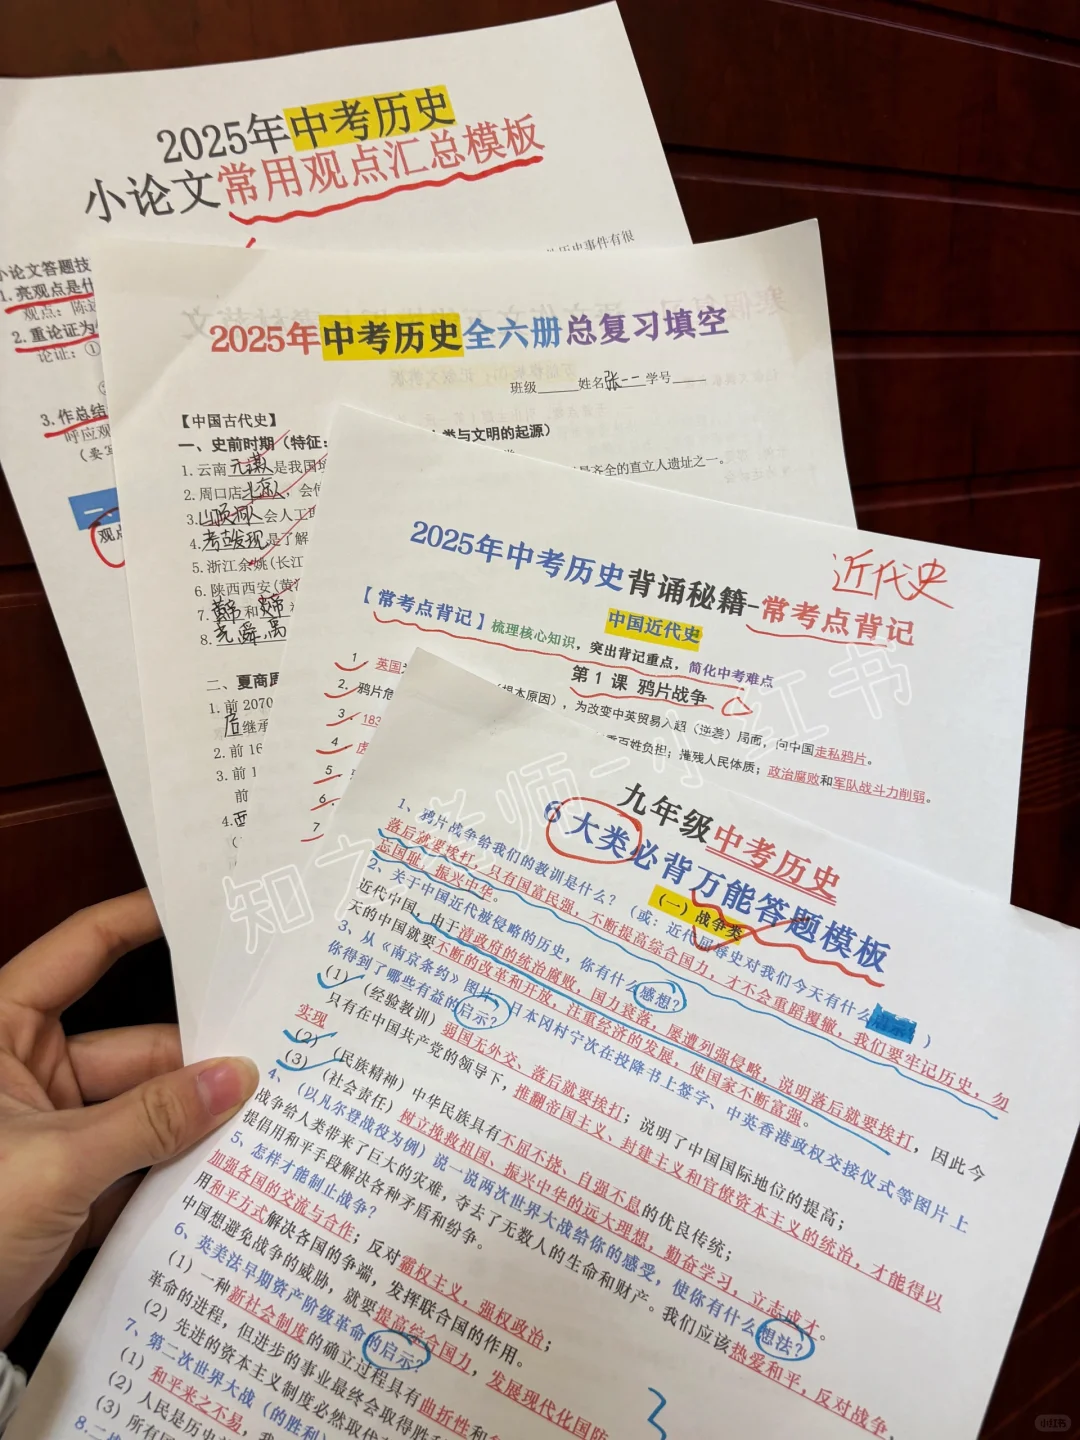 2025年中考历史
小论文常用观点汇总模板
历史事件有很
小论文答题技
1.亮观点是什
观点：陈述
2.重论证为
论证：①
3.作总结
呼应观
（要写
一、
观点
2025年中考历史全六册总复习填空
班级 姓名张一二学号
【中国古代史】
一、史前时期（特征： 人类与文明的起源）
1.云南元谋人是我国境
是齐全的直立人遗址之一。
2.周口店北京人，会使
3.山顶洞人会人工取
4.考古发现是了解
5.浙江余姚(长江
6.陕西西安(黄河
7.黄帝和炎帝
8.尧舜禹
二、夏商周
1.前2070
启继承
2.前16
3.前1
前
4.西
近代史
2025年中考历史背诵秘籍-常考点背记
【常考点背记】梳理核心知识，突出背记重点，简化中考难点
中国近代史
第1课 鸦片战争
1 英国
（根本原因），为改变中英贸易入超（逆差）局面，向中国走私鸦片。
2. 鸦片危
百姓负担；摧残人民体质；政治腐败和军队战斗力削弱。
3. 183
4 虎
5.
6.
7
九年级中考历史
6大类必背万能答题模板
（一）战争类
1、鸦片战争给我们的教训是什么？（或：近代屈辱史对我们今天有什么 ）
落后就要挨打，只有国富民强，不断提高综合国力，才不会重蹈覆辙，我们要牢记历史，勿
忘国耻，振兴中华。
2、关于中国近代被侵略的历史，你有什么感想？
近代中国，由于清政府的统治腐败，国力衰落，屡遭列强侵略，说明落后就要挨打，因此今
天的中国就要不断的改革和开放，注重经济的发展，使国家不断富强。
3、从《南京条约》图片、日本冈村宁次在投降书上签字、中英香港政权交接仪式等图片上
你得到了哪些有益的启示？
(1)（经验教训）弱国无外交、落后就要挨打；说明了中国国际地位的提高；
只有在中国共产党的领导下，推翻帝国主义、封建主义和官僚资本主义的统治，才能得以
实现
(2)（民族精神）中华民族具有不屈不挠、自强不息的优良传统；
(3)（社会责任）树立挽救祖国、振兴中华的远大理想，勤奋学习，立志成才。
4、（以凡尔登战役为例）说一说两次世界大战给你的感受，使你有什么想法？
战争给人类带来了巨大的灾难，夺去了无数人的生命和财产。我们应该热爱和平，反对战争，
提倡用和平手段解决各种矛盾和纷争。
5、怎样才能制止战争？
加强各国的交流与合作；反对霸权主义，强权政治；
用和平方式解决各国的争端，发挥联合国的作用。
中国想避免战争的威胁，就要提高综合国力，发展现代化国防
6、英美法早期资产阶级革命的启示？
(1)一种新社会制度的确立过程具有曲折性和
革命的进程，但进步的事业最终会取得胜
(2)先进的资本主义制度必然取代
7、第二次世界大战（的胜利
(1)和平来之不易，我
(2)人民是历史
(3)所有国
8.二战
知之老师-小红书
小红书